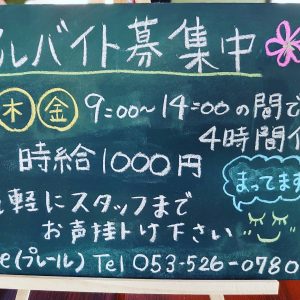 ルバイト募集中
木 金 9:00〜14:00の間で
4時間
時給1000円
まってます
軽にスタッフまで
お声掛け下さい
e(プレール) Tel 053-526-0780